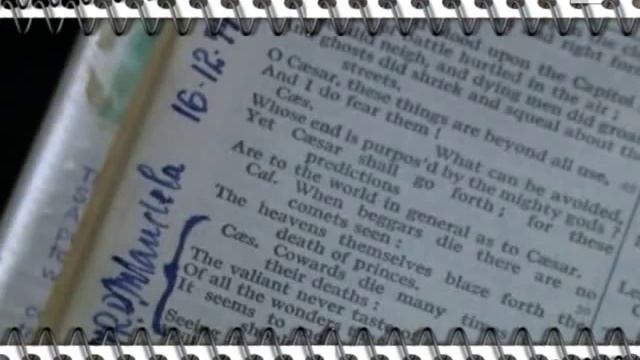 upon the Capitol
battle hurtled in the air;
neigh, and dying men did
ghosts did shriek and squeal about the
streets.
O Cæsar, these things are beyond all use,
And I do fear them!
Cæs. What can be avoided,
Whose end is purpos'd by the mighty gods?
Yet Cæsar shall go forth; for these
predictions
Are to the world in general as to Cæsar.
Cal. When beggars die there are no
comets seen:
The heavens themselves blaze forth the
death of princes.
Cæs. Cowards die many times
their deaths:
The valiant never taste of
Of all the wonders
It seems to
Seeing
NRDMandela 16.12.